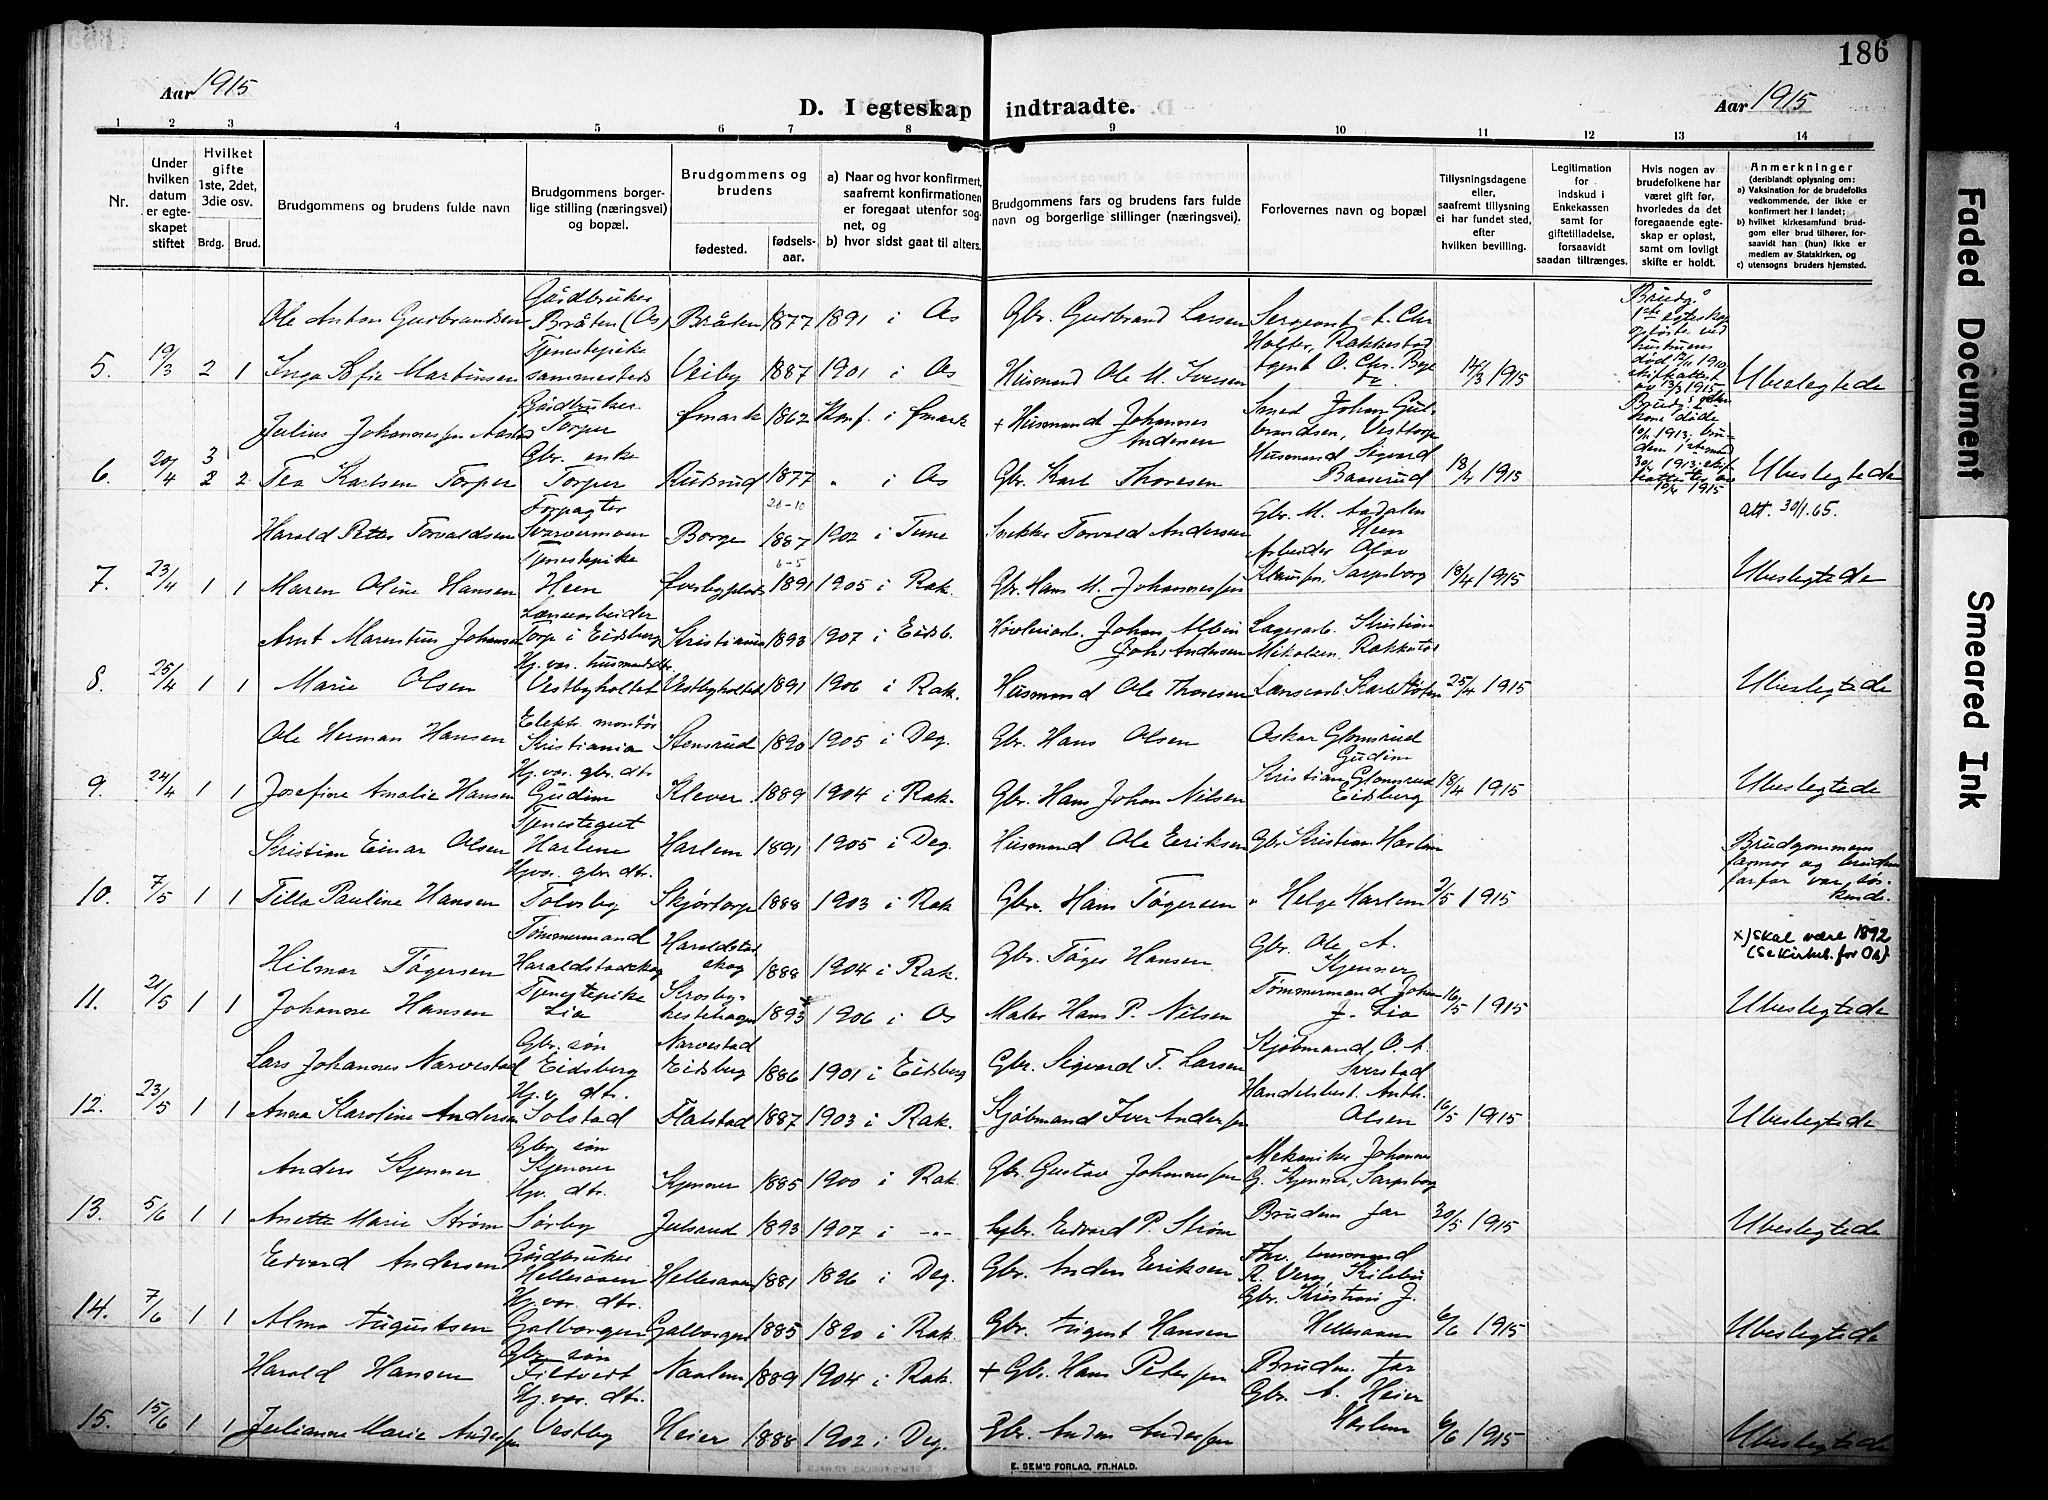 186
Aar 1915
D. I egteskap indtraadte.
Aar 1915
1 2 3 4 5 6 7 8 9 10 11 12 13 14
Nr.
Under hvilken datum er egteskapet stiftet
Hvilket gifte 1ste, 2det, 3die osv.
Brdg. Brud.
Brudgommens og brudens fulde navn
Brudgommens borgerlige stilling (næringsvei) og bopæl.
Brudgommens og brudens
fødested. fødselsaar.
a) Naar og hvor konfirmert, saafremt konfirmationen er foregaat utenfor sognet, og
b) hvor sidst gaat til alters.
Brudgommens fars og brudens fars fulde navn og borgerlige stillinger (næringsvei).
Forlovernes navn og bopæl
Tillysningsdagene eller, saafremt tillysning ei har fundet sted, efter hvilken bevilling.
Legitimation for indskud i Enkekassen samt for giftetilladelse, forsaavidt saadan tiltrænges.
Hvis nogen av brudefolkene har været gift før, hvorledes da det foregaaende egteskap er opløst, samt om lovligt skifte er holdt.
Anmerkninger
(deriblandt oplysning om:
a) Vaksination for de brudefolks vedkommende, der ikke er konfirmert her i landet;
b) hvilket kirkesamfund brudgom eller brud tilhører, forsaavidt han (hun) ikke er medlem av Statskirken, og
c) utensogns bruders hjemsted.
Ole Anton Gudbrandsen Gårdbruker Bråten (Os) Bråten 1877 1891 i Os Gbr. Gudbrand Larsen Sergeant A. Chr Holter, Rakkestad
5. 19/3 2 1 Inga Sofie Martinsen Tjenestepike sammesteds Veiby 1887 1901 i Os Husmand Ole M. Iversen Agent O. Chr. 14/3 1915 Ubeslegtede
Brudg. 1ste egteskap opløste ved hustruens død 12/11 1910 skifteattest av 13/3 1915
Julius Johannessen Gårdbruker Torper Ømark 1862 Konf. i Ømark + Husmand Johannes Andersen Smed Johan Gulbrandsen, Vesttorp
6. 20/4 3 2 2 Tea Karlsen Torper Gbr. enke Torper Rudsrud 1877 " i Os Gbr. Karl Thoresen Husmand Sigvard Baaserud 18/4 1915 Ubeslegtede
Harald Petter Torvaldsen Forpagter Borge 26-10 1887 1902 i Tune Snekker Torvald Andersen Gbr. M. Aadalen Heen att. 30/1.65.
7. 23/4 1 1 Maren Oline Hansen Tjenestepike Heen Øverbyplads 6-5 1891 1905 i Rak. Gbr. Hans M. Johannessen Arbeider Olav Sarpsborg 18/4 1915 Ubeslegtede
Arnt Marentius Johansen Torp i Eidsberg Kristiania 1893 1907 i Eidsb. Høvleriarb. Johan Albin Joh. Andersen Lagerarb. Kristian Mikalsen, Rakkestad
8. 25/4 1 1 Marie Olsen Hj. vær. husmandsdtr. Vestbyholtet Vestbyholtet 1891 1906 i Rak. Husmand Ole Thoresen 25/4 1915 Ubeslegtede
Ole Herman Hansen Elektr. montør Kristiania Stensrud 1890 1905 i Deg. Gbr. Hans Olsen Oskar Glomsrud Gudim
9. 24/4 1 1 Josefine Amalie Hansen Hj. vær. gbr. dtr. Gudim Klever 1889 1904 i Rak. Gbr. Hans Johan Nilsen Kristian Glomsrud Eidsberg 18/4 1915 Ubeslegtede
Kristian Einar Olsen Tjenestegut Harlem Harlem 1891 1905 i Deg. Husmand Ole Eriksen Gbr. Kristian Harlem Brudgommens farmor og brudens farfar var søskende.
10. 7/5 1 1 Tilla Pauline Hansen Hj. vær. gbr. dtr. Tolvsby Skjørtorp 1888 1903 i Rak Gbr. Hans Tøgersen " Helge Harlem 2/5 1915
Hilmar Tøgersen Tømmermand Haraldstadskog Haraldstadskog 1888 1904 i Rak. Gbr. Tøger Hansen Gbr. Ole A. Kjenner x) skal være 1892 (se kirkeb. for Os)
11. 21/5 1 1 Johanne Hansen Tjenestepike Lia Krosbyhestehagen 1893 x 1906 i Os Maler Hans P. Nilsen Tømmermand Johan J. Lia 16/5 1915 Ubeslegtede
Lars Johannes Narvestad Gbr. søn Eidsberg Narvestad Eidsberg 1886 1901 i Eidsberg Gbr. Sigvard T. Larsen Kjøbmand O. A. Sverstad
12. 23/5 1 1 Anna Karoline Andersen Hj. v. dtr. Solstad Flatstad 1887 1903 i Rak. Kjøbmand Iver Andersen Handelsbest. Anth. Olsen 16/5 1915 Ubeslegtede
Anders Kjenner Gbr. søn Kjenner Kjenner 1885 1900 i Rak. Gbr. Gustav Johannessen Mekaniker Johannes G. Kjenner, Sarpsborg
13. 5/6 1 1 Anette Marie Strøm Hjv. dtr. Sørby Julsrud 1893 1907 i -"- Gbr. Edvard P. Strøm Brudens far 30/5 1915 Ubeslegtede
Edvard Andersen Gårdbruker Hellesaaen Hellesaaen 1881 1896 i Deg. Gbr. Anders Eriksen
14. 7/6 1 1 Alma Augustsen Hj. vær. dtr. Galborgen Galborgen 1885 1890 i Rak. Gbr. August Hansen Gbr. Kristian J. Hellesaaen 6/6 1915 Ubeslegtede
Harald Hansen Gbr søn Filtvedt Naalem 1889 1904 i Rak. + Gbr. Hans Petersen Brudens far
15. 15/6 1 1 Julianne Marie Andersen Hj. vær. dtr. Vestby Heier 1888 1902 i Deg. Gbr. Anders Andersen Gbr. A. Heier Harlem 6/6 1915 Ubeslegtede
E. SEM'S FORLAG, FR.HALD.
Faded Document
Smeared Ink